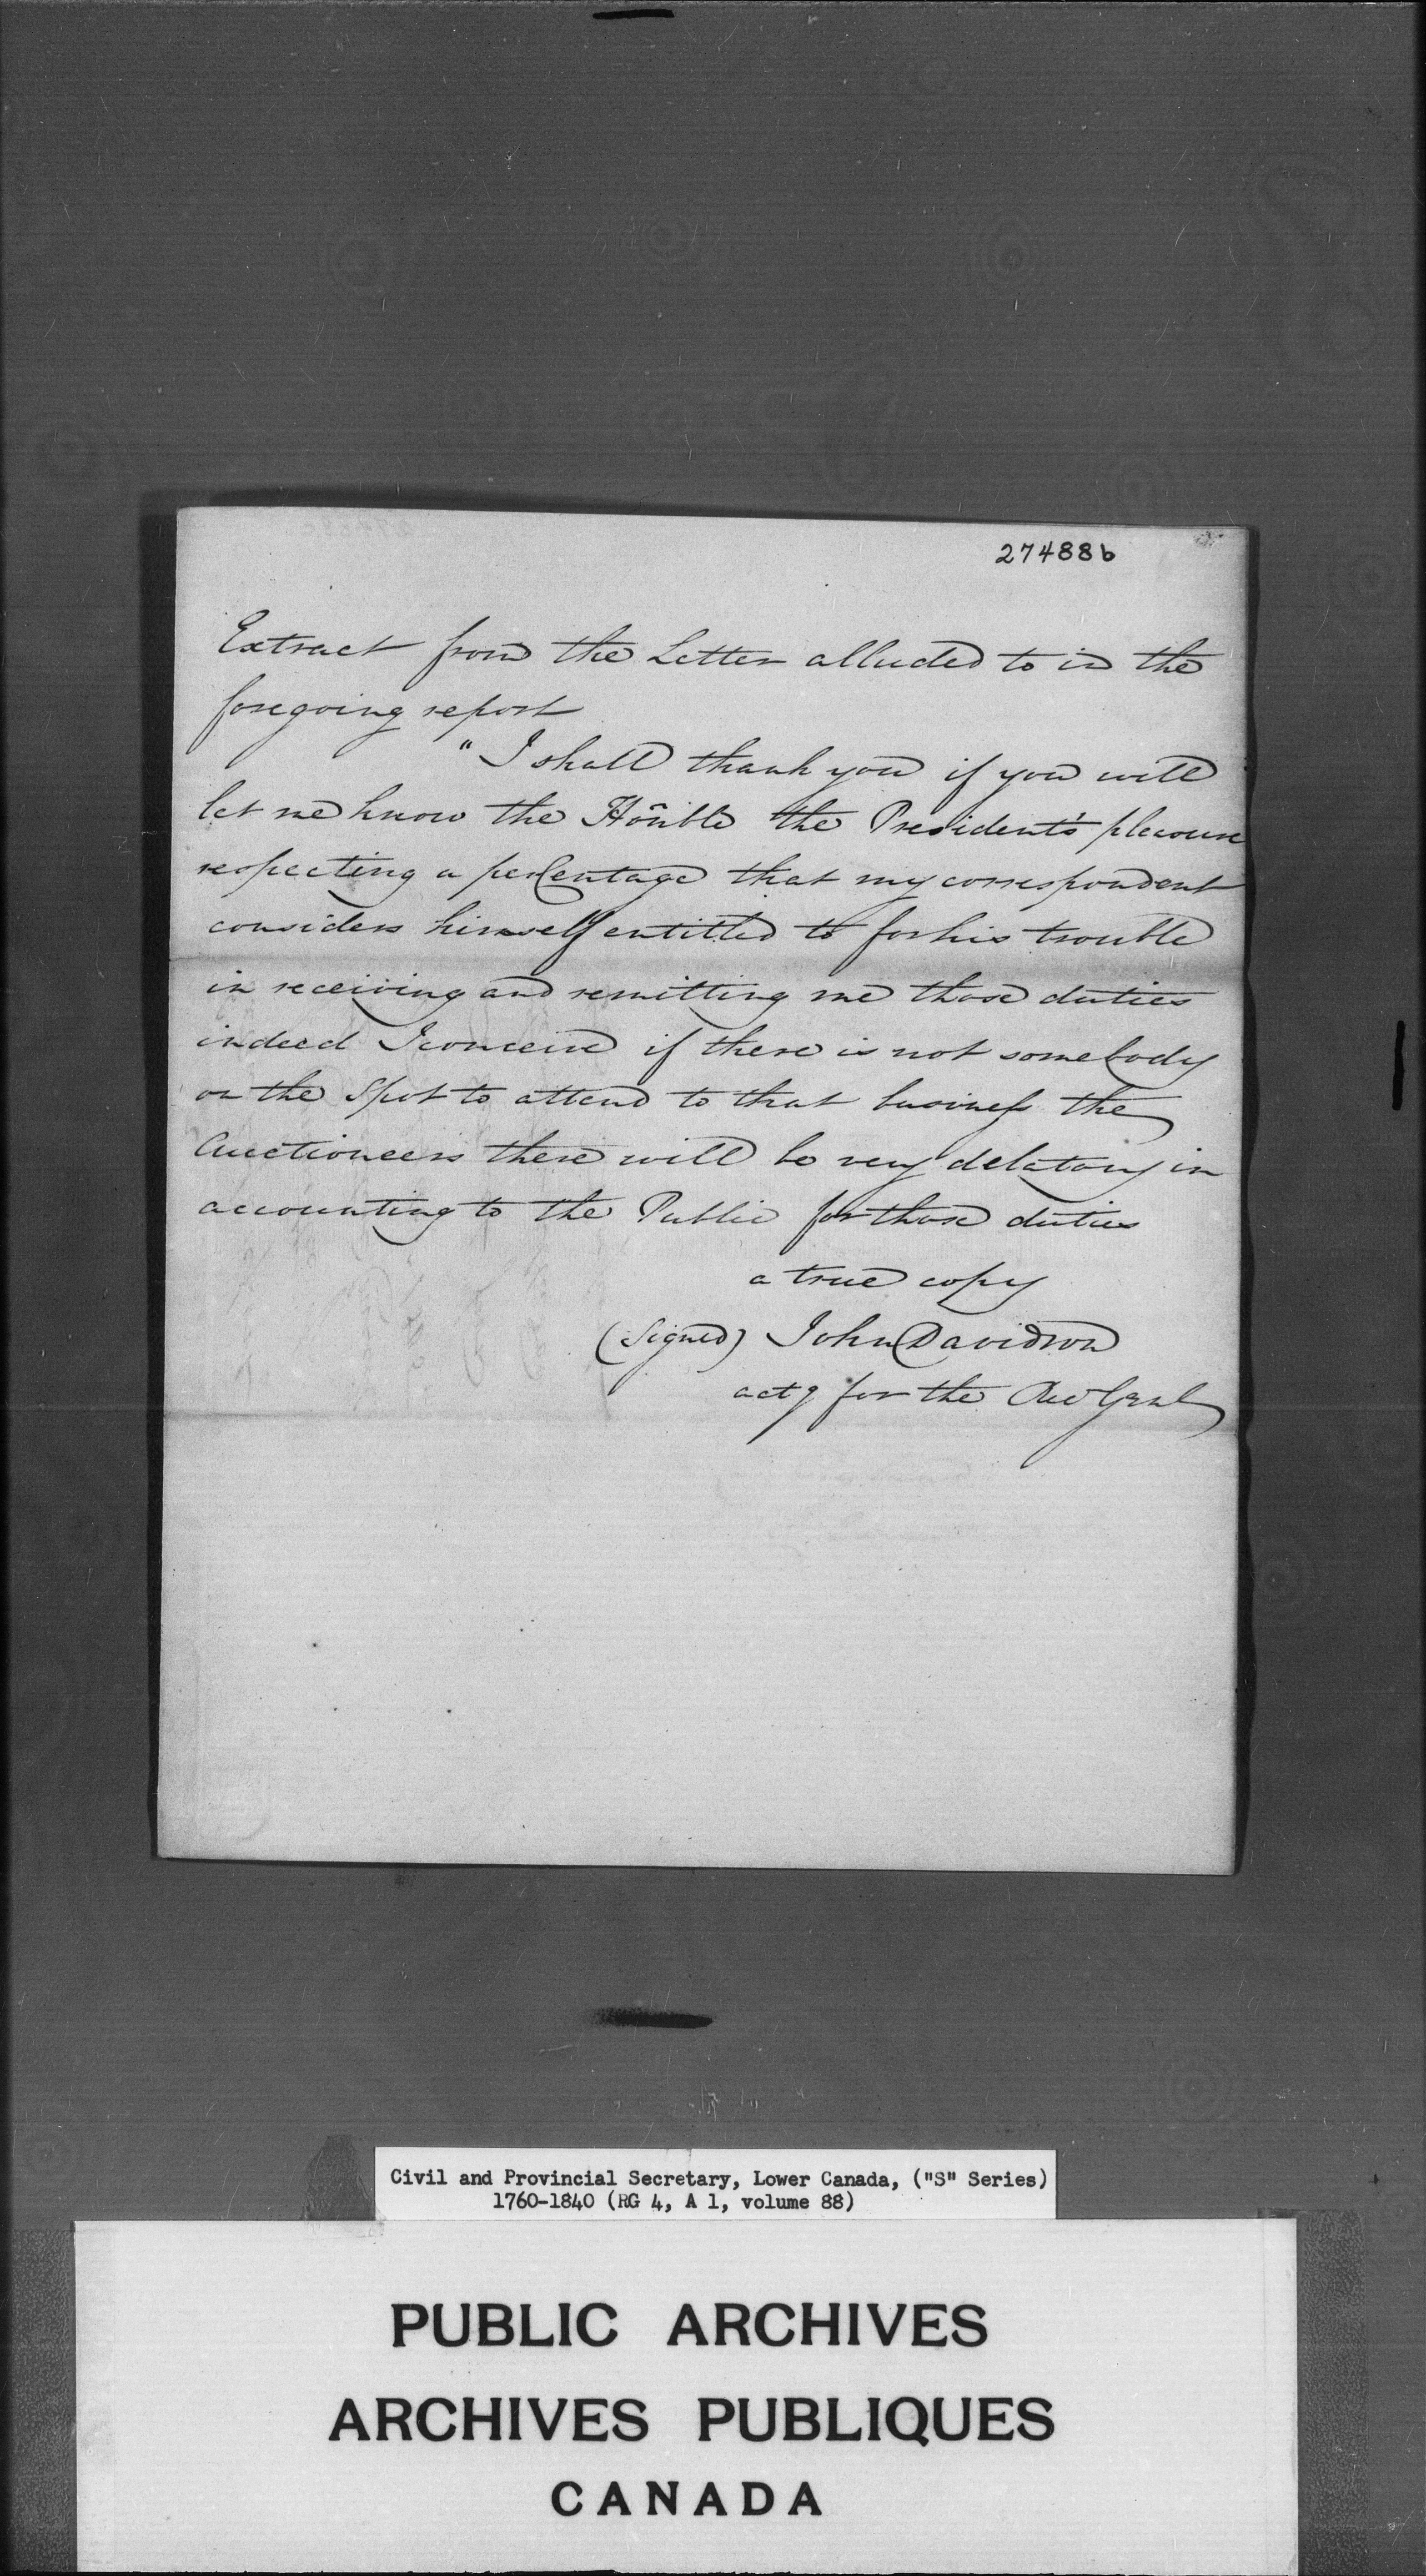 27488b
Extract from the Letter alluded to in the
foregoing report
"I shall thank you if you will
let me know the Hon̄ble the President's pleasure
respecting a perCentage that my correspondent
considers himself entitled to for his trouble
in receiving and remitting me those duties
indeed I conceive if there is not somebody
on the Spot to attend to that business the
Auctioneers there will be very delatory in
accounting to the Public for those duties
a true copy
(Signed) John Davidson
actg for the Aud Genl
Civil and Provincial Secretary, Lower Canada, ("S" Series)
1760-1840 (RG 4, A 1, volume 88)
PUBLIC ARCHIVES
ARCHIVES PUBLIQUES
CANADA